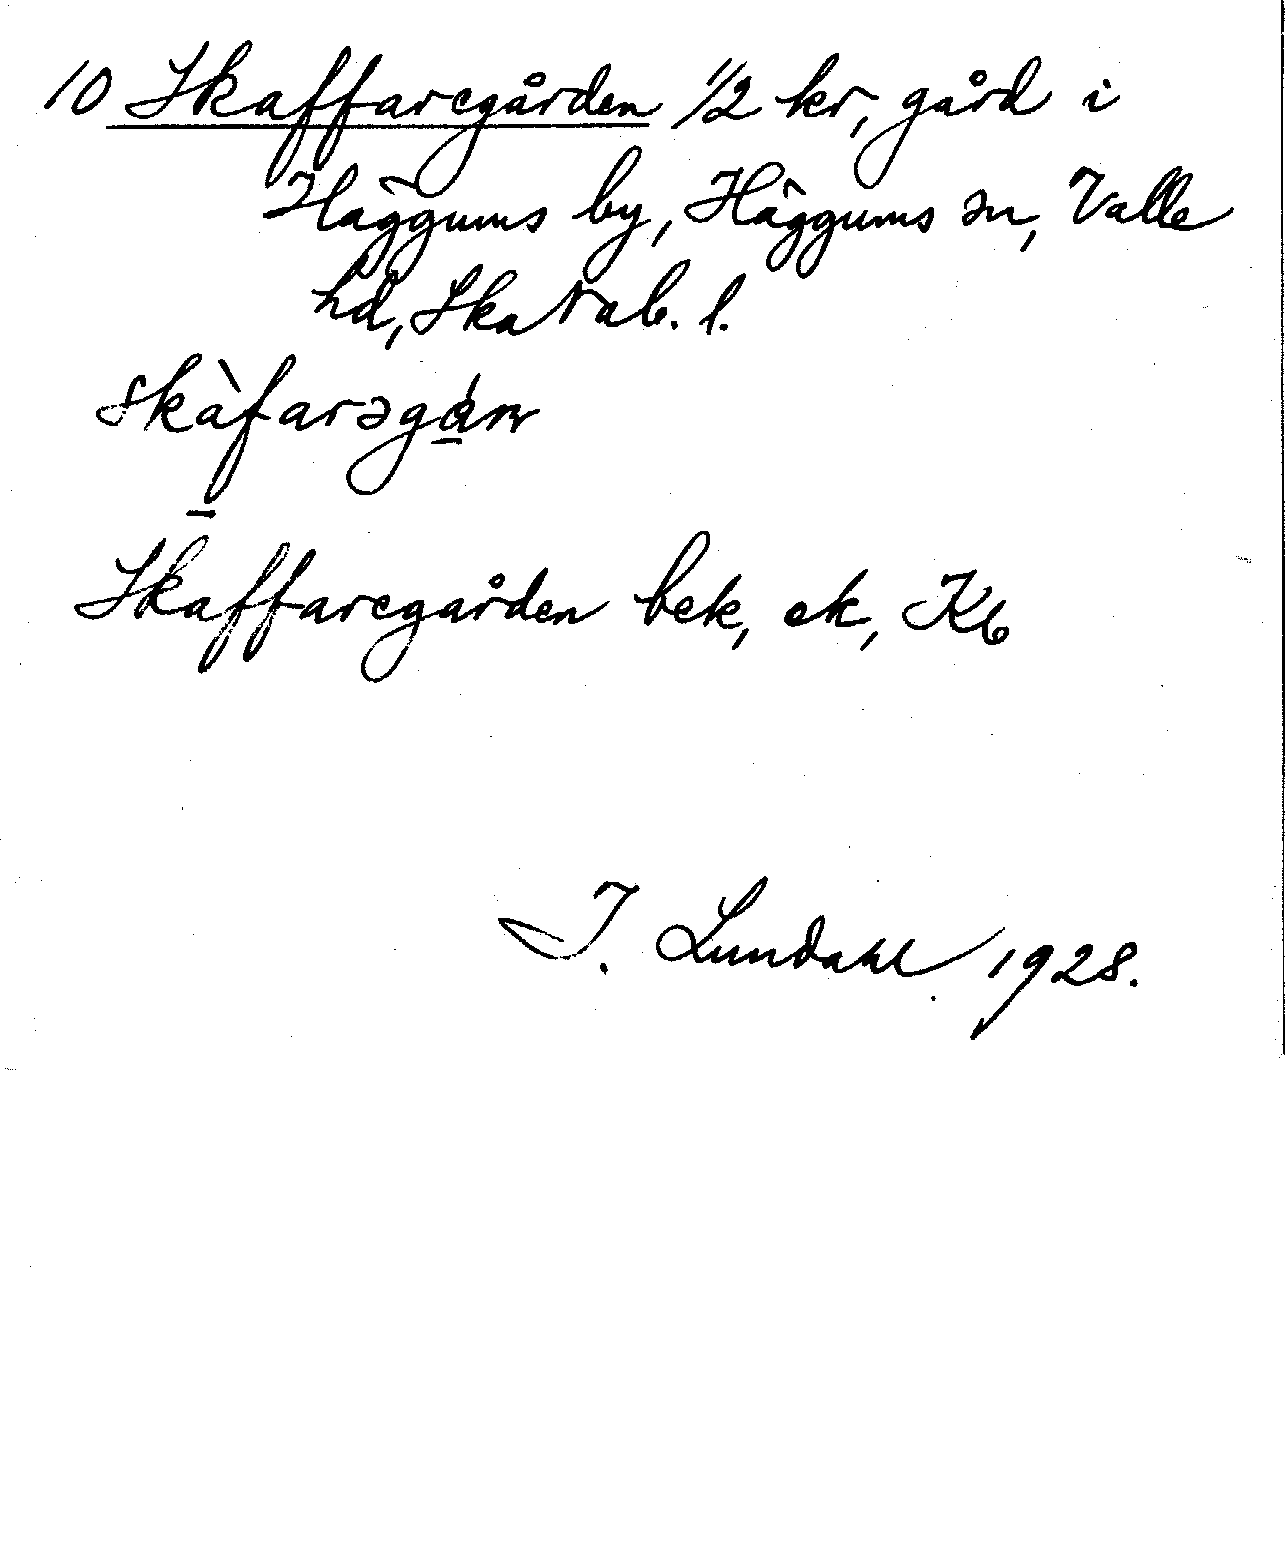 10 Skaffaregården 1/2 kr, gård i
Häggums by, Häggums sn, Valle
hd, Skarab. l.
skàfarəgán
Skaffaregården bek, ek, Kb
I. Lundahl 1928.